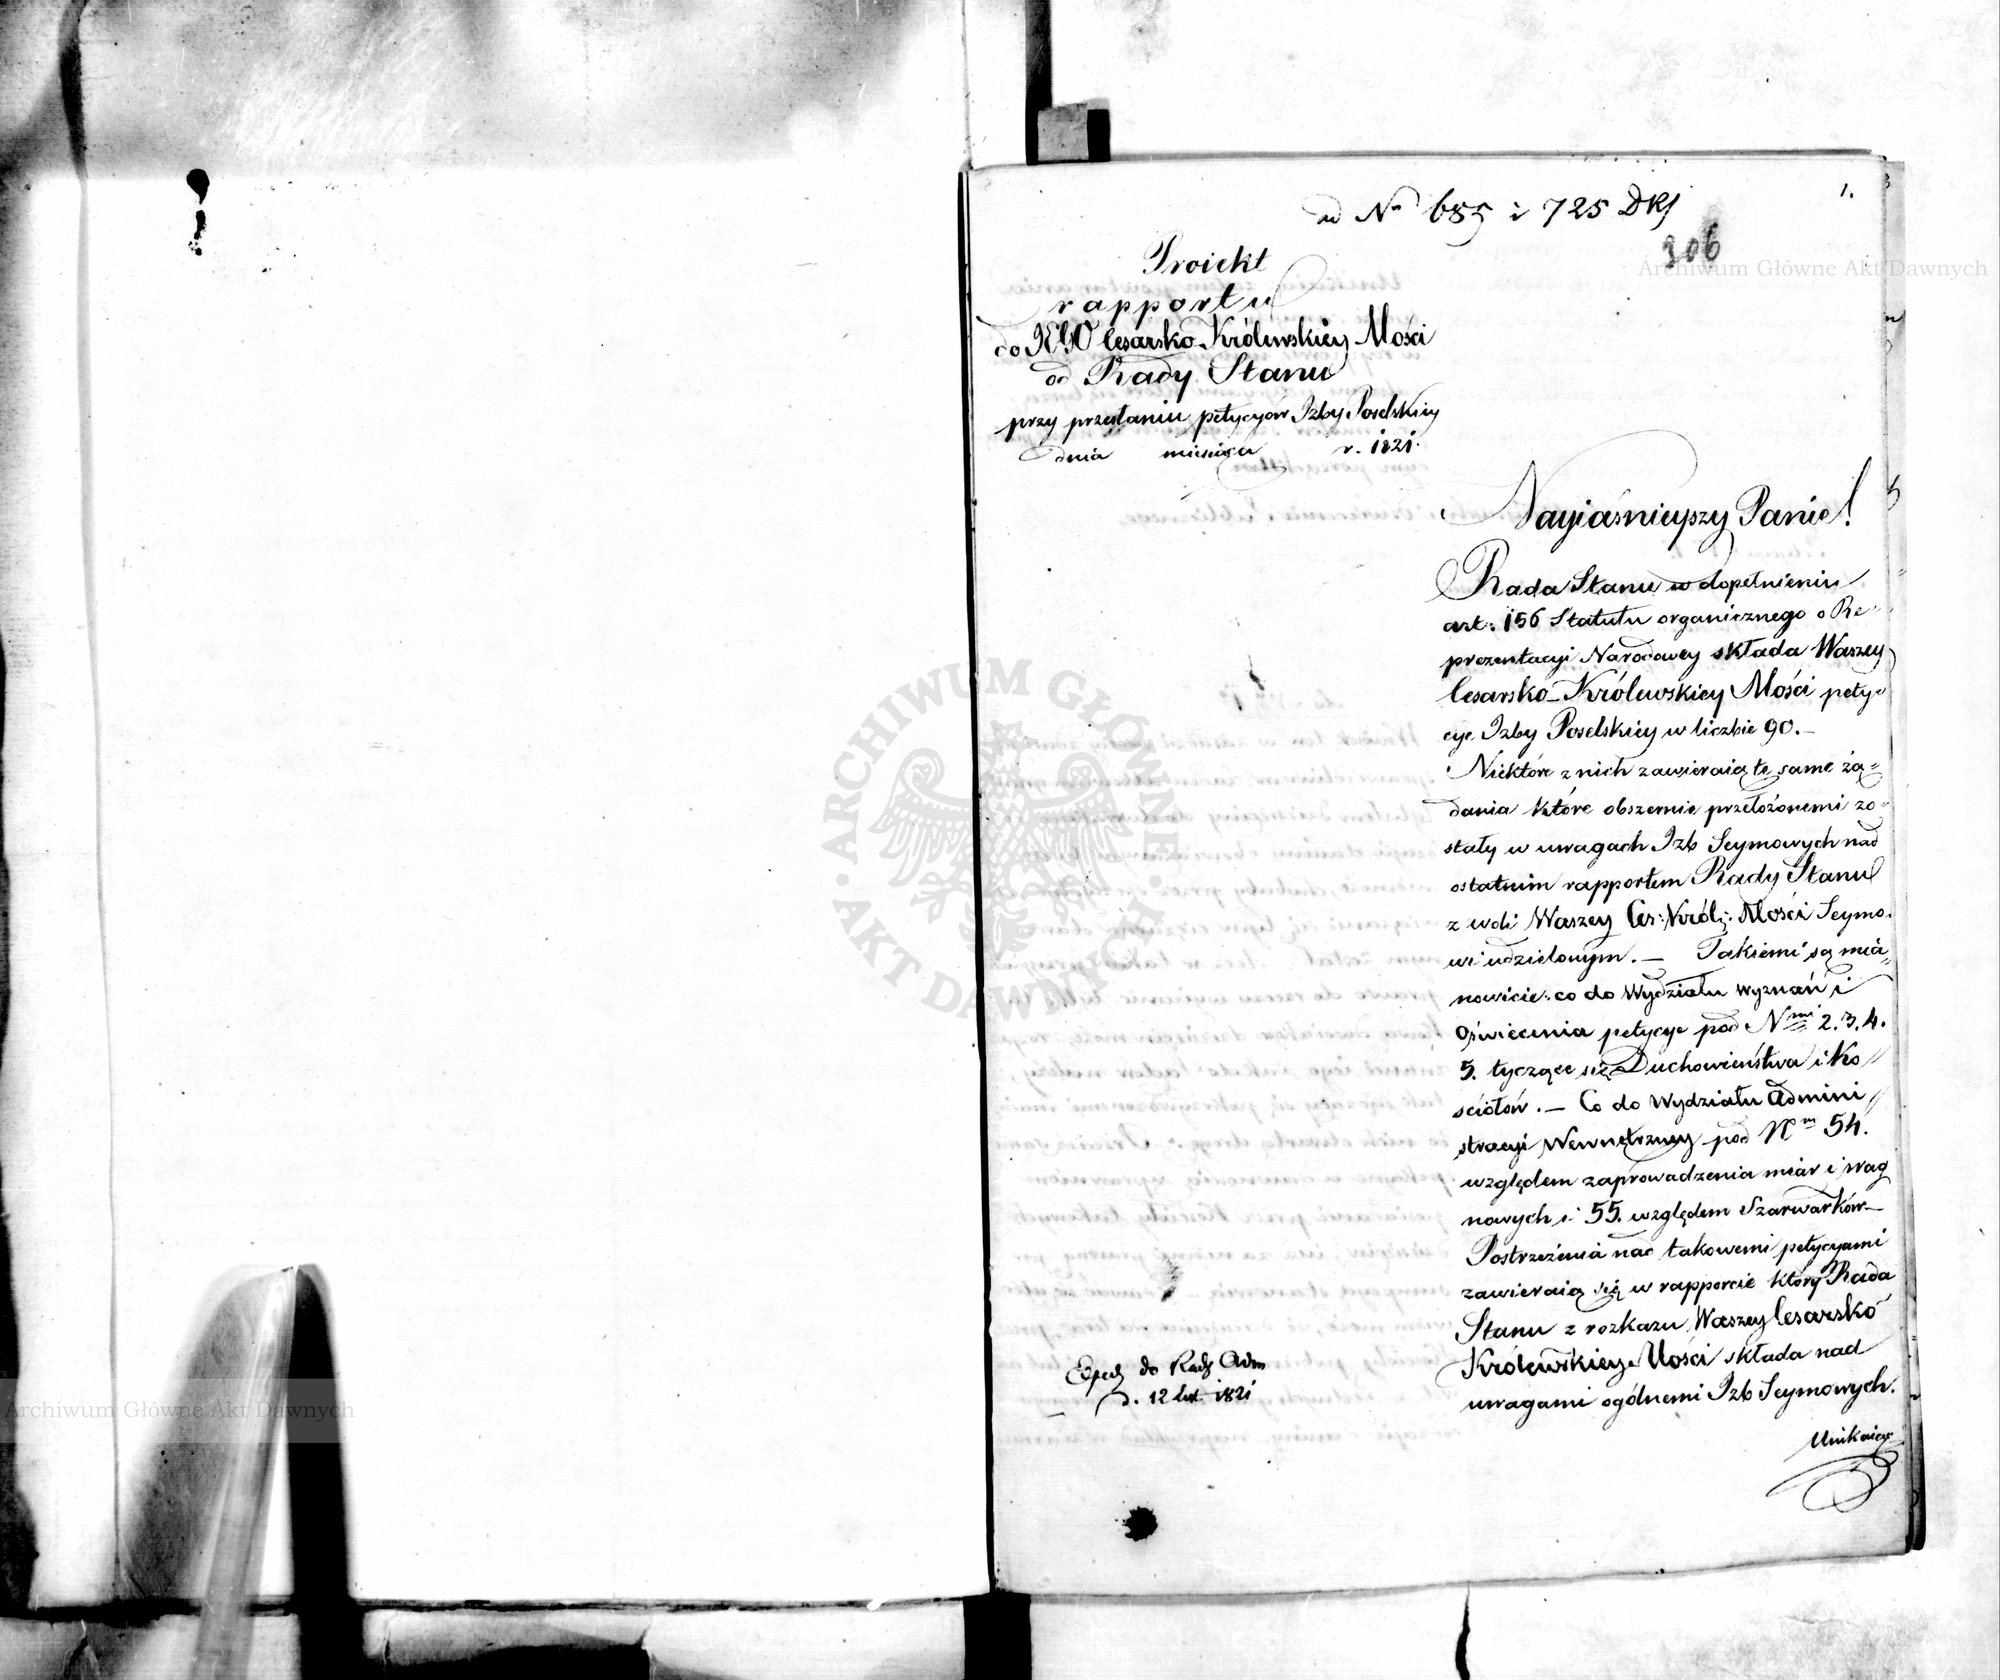 ad Nr 685 i 725 DRS
1.
306
Proiekt
rapportu
do JEGO Cesarsko Królewskiey Mości
od Rady Stanu
przy przesłaniu petycyów Izby Poselskiey
dnia miesiąca r. 1821.
Nayiaśnieyszy Panie!
Rada Stanu w dopełnieniu
art: 156 Statutu organicznego o Re
prezentacyi Narodowey składa Waszey
Cesarsko-Królewskiey Mości pety-
cye Izby Poselskiey w liczbie 90.—
Niektóre z nich zawieraią te same żą=
dania które obszernie przełożonemi zo=
stały w uwagach Izb Seymowych nad
ostatnim rapportem Rady Stanu
z woli Waszey Ces: Król: Mości Seymo.
wi udzielonym.— Takiemi są mia=
nowicie: co do Wydziału wyznań i
Oświecenia petycye pod Nmi 2. 3. 4.
5. tyczące się Duchowieństwa i Ko //
sciołów.— Co do Wydziału Admini //
stracyi Wewnętrzney pod Nm 54.
względem zaprowadzenia miar i wag
nowych i 55. względem Szarwarków—
Postrzeżenia nad takowemi petycyami
zawieraią się w rapporcie który Rada
Stanu z rozkazu Waszey Cesarsko
Królewskiey Mości składa nad
uwagami ogólnemi Izb Seymowych.
Unikaiąc
Exped do Rady Adm
d. 12 Lut 1821
Archiwum Główne Akt Dawnych
ARCHIWUM GŁÓWNE
AKT DAWNYCH
Archiwum Główne Akt Dawnych